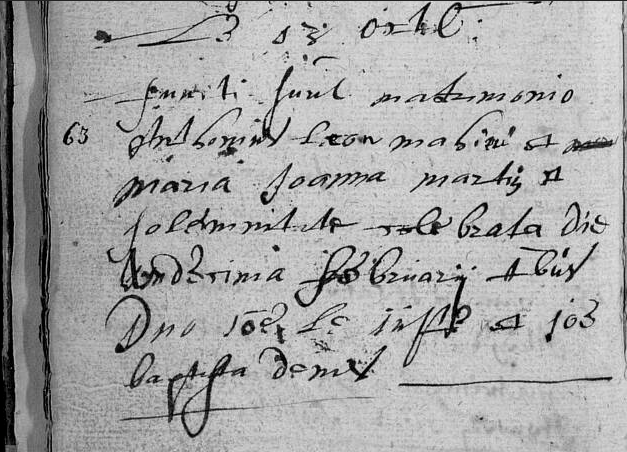 13
Juncti sunt matrimonio
63 Anthonius Leon mahieu et
maria Joanna martin et
solemnitate celebrata die
undecima february
Dno Joe Le et Joe
baptista